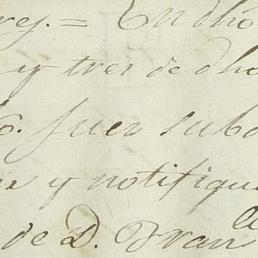 rey. = En dho
y tres de dho
o. Juez suba
y notifiqu
de D. Fran